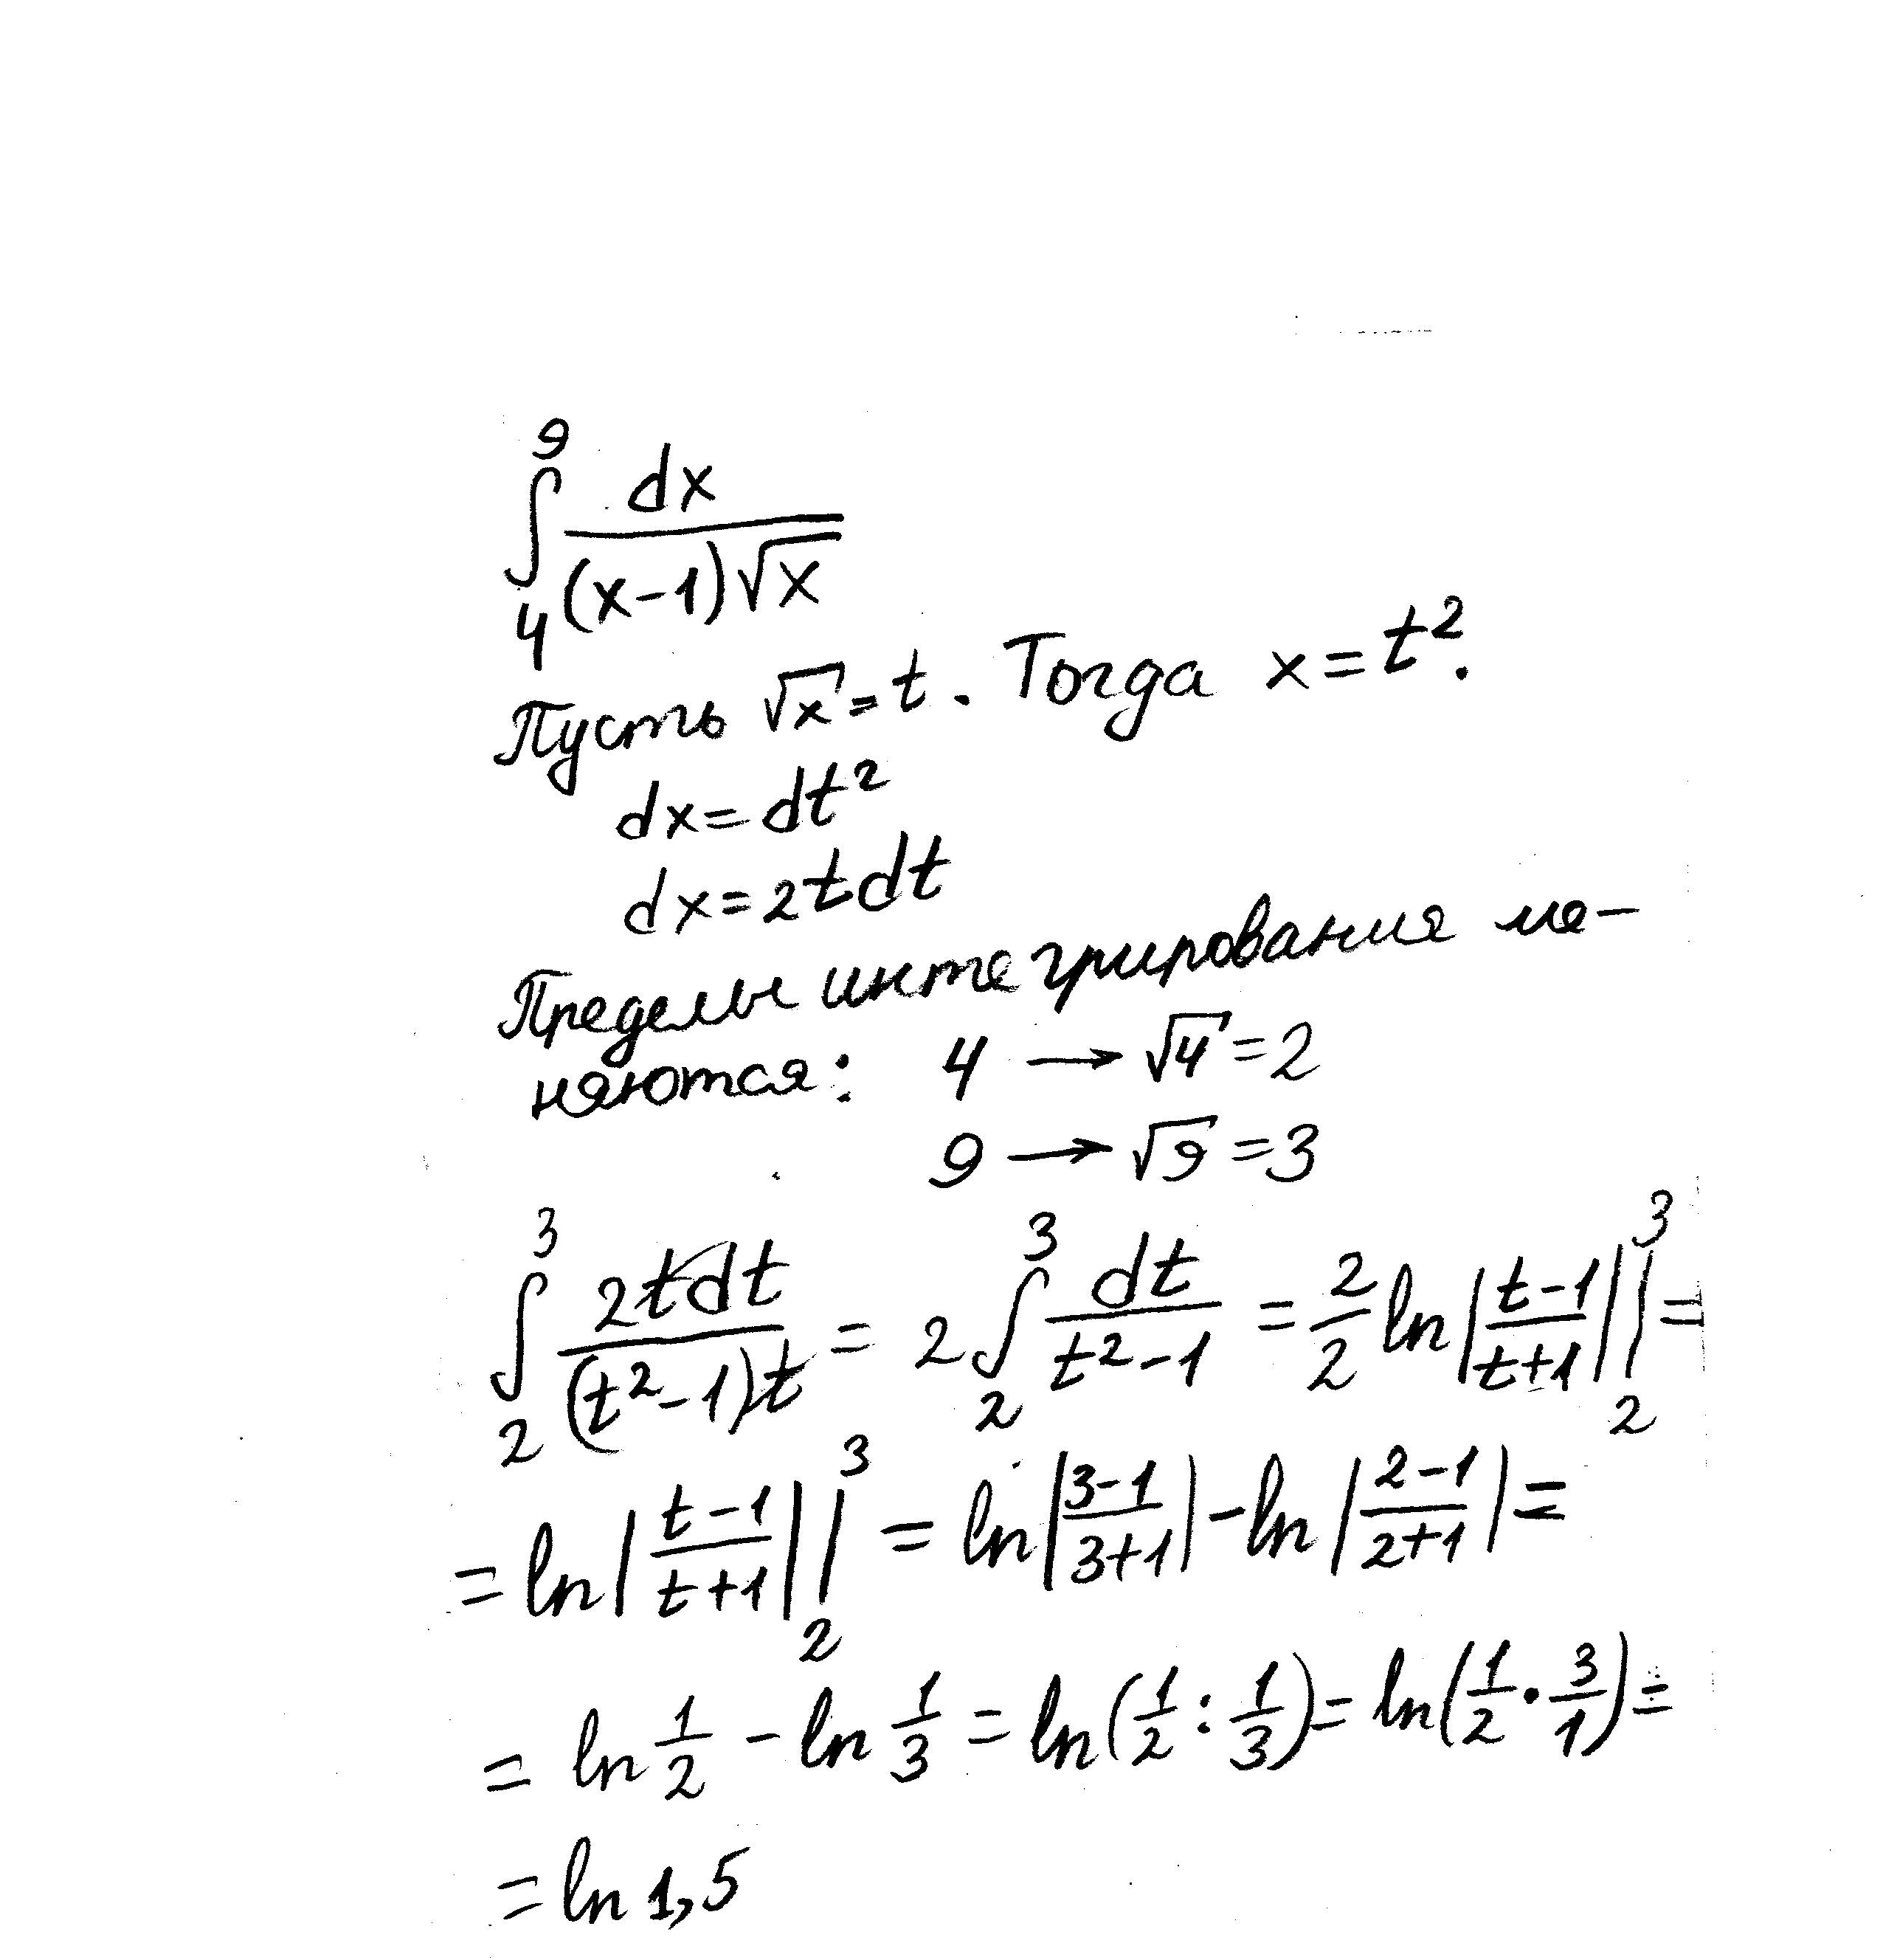 ∫₄⁹ dx / ((x-1)√x)
Пусть √x = t. Тогда x = t².
dx = dt²
dx = 2tdt
Пределы интегрирования ме-
няются: 4 → √4 = 2
9 → √9 = 3
∫₂³ 2tdt / ((t²-1)t) = 2 ∫₂³ dt / (t²-1) = 2/2 ln |(t-1)/(t+1)| |₂³ =
= ln |(t-1)/(t+1)| |₂³ = ln |(3-1)/(3+1)| - ln |(2-1)/(2+1)| =
= ln 1/2 - ln 1/3 = ln(1/2 : 1/3) = ln(1/2 · 3/1) =
= ln 1,5